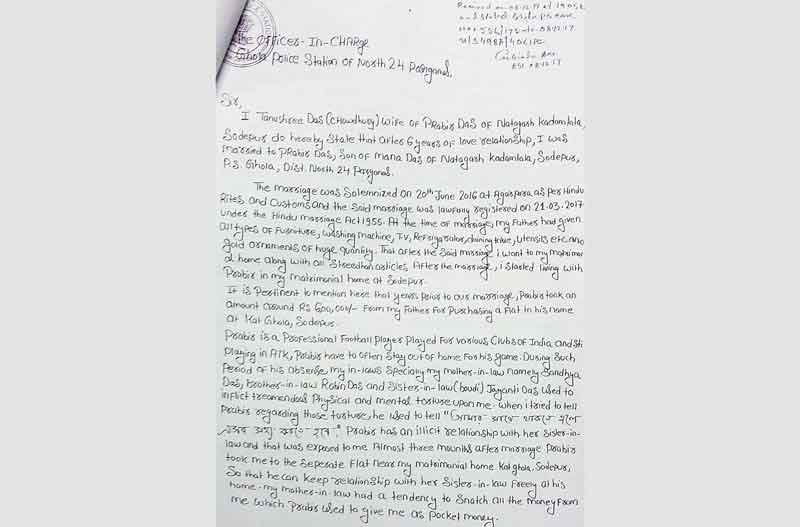 Received on 08.12.17 at 19.05 hrs
and started Ghola P.S Case
08.12.17
U/S 498A/406 IPC
ASI 08.12.17
The Officer-In-CHARge
Ghola Police Station of North 24 Parganas,
Sir,
I Tanushree Das (Chowdhury) Wife of PRabir Das of Natagarh Kadamtala,
Sodepur do hereby State that after 6 years of love relationship, I was
married to PRabir Das, Son of Mana Das of Natagarh Kadamtala, Sodepur,
P.S. Ghola, Dist. North 24 Parganas.
The marriage was Solemnized on 20th June 2016 at Agarpara as per Hindu
Rites and Customs and the Said marriage was lawfully registered on 21.03.2017
under the Hindu marriage Act 1955. At the time of marriage, my Father had given
all types of Furniture, Washing machine, T.V, Refrigarator, dining table, utensils etc. and
gold ornaments of huge quantity. That after the Said marriage i went to my matrimoni
al home along with all Streedhan articles. After the marriage, i started living with
Prabir in my matrimonial home at Sodepur.
It is Pertinent to mention here that years prior to our marriage, Prabir took an
amount around Rs 600,000/- From my Father For Purchasing a Flat in his name
at Kat Ghola, Sodepur.
Prabir is a Professional Football Player Played For various Clubs of India and sti
Playing in ATK, Prabir have to often Stay out of home For his game. During such
Period of his absense, my in-laws Specialy my mother-in-law namely Sandhya
Das, brother-in-law Robin Das and Sister-in-law (boudi) Jayanti Das used to
inflict treamendous Physical and mental torture upon me. When i tried to tell
Prabir regarding those torture, he used to tell "তোমাকে থাকতে হলে
সহ্য করতে হবে". Prabir has an illicit relationship with her Sister-in-
law and that was exposed to me. Almost three mounths after marriage Prabir
took me to the Seperate Flat near my matrimonial home Kat ghola, Sodepur,
So that he can keep relationship with her Sister-in-law Freely at his
home. my mother-in-law had a tendency to Snatch all the money From
me which Prabir used to give me as pocket money.